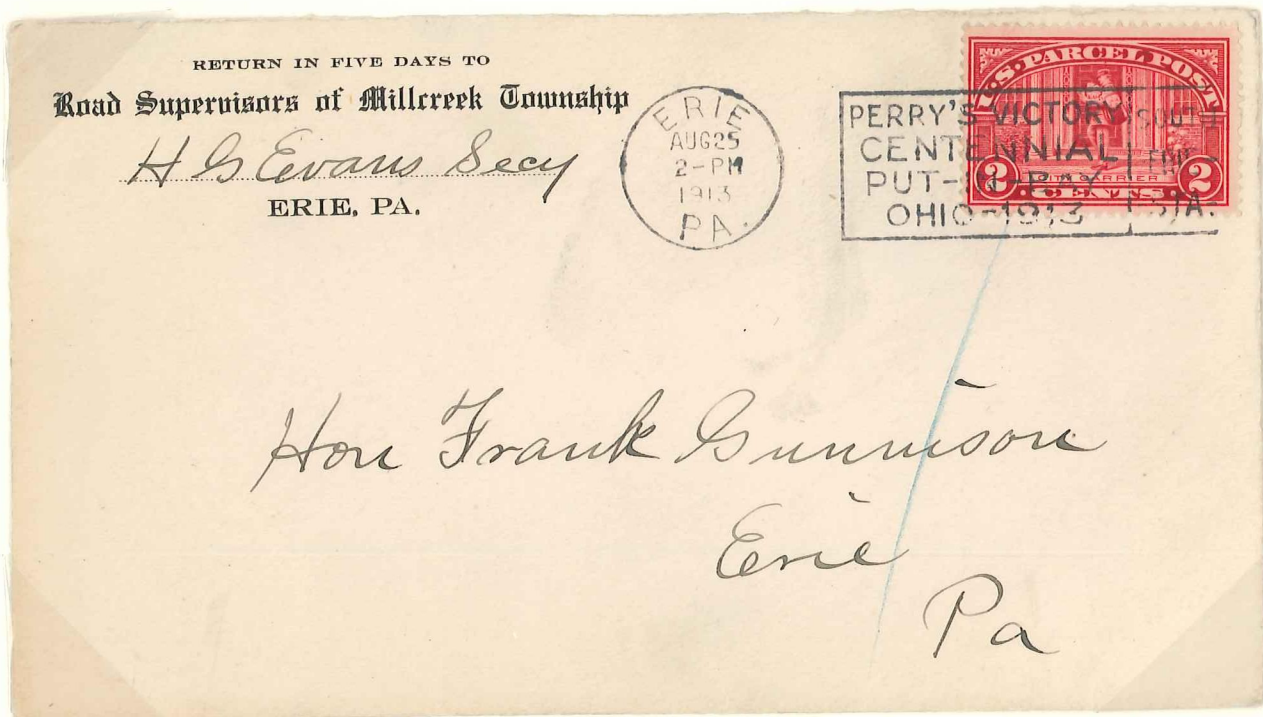 RETURN IN FIVE DAYS TO
Road Supervisors of Millcreek Township
H G Evans Secy
ERIE, PA.
ERIE
AUG25
2-PM
1913
PA.
PERRY'S VICTORY
CENTENNIAL
PUT-IN-BAY
OHIO-1913
STA.
U.S. PARCEL POST
CITY CARRIER
2 CENTS 2
Hon Frank Gunnison
Erie
Pa